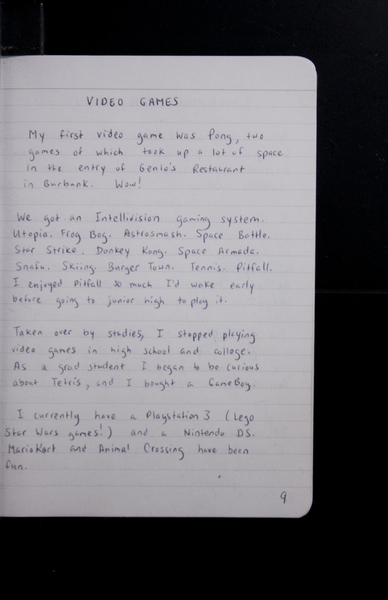 VIDEO GAMES
My first video game was Pong, two
games of which took up a lot of space
in the entry of Genio's Restaurant
in Burbank. Wow!
We got an Intellivision gaming system.
Utopia. Frog Bog. Astrosmash. Space Battle.
Star Strike. Donkey Kong. Space Armada.
Snafu. Skiing. Burger Town. Tennis. Pitfall.
I enjoyed Pitfall so much I'd wake early
before going to junior high to play it.
Taken over by studies, I stopped playing
video games in high school and college.
As a grad student I began to be curious
about Tetris, and I bought a GameBoy.
I currently have a Playstation 3 (Lego
Star Wars games!) and a Nintendo DS.
MarioKart and Animal Crossing have been
fun.
9